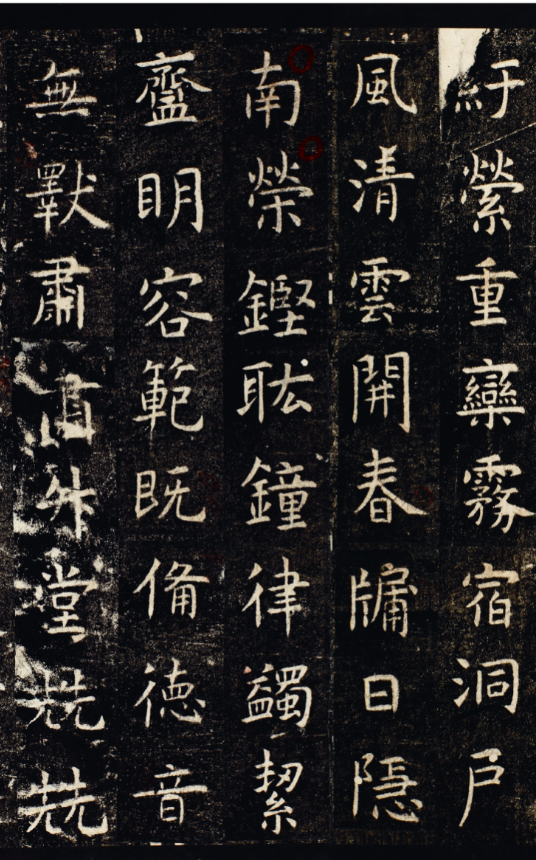 紆縈重欒霧宿洞戶
風清雲開春牖日隱
南榮鏗耾鐘律蠲絜
齍明容範既備德音
無斁肅升堂兟兟